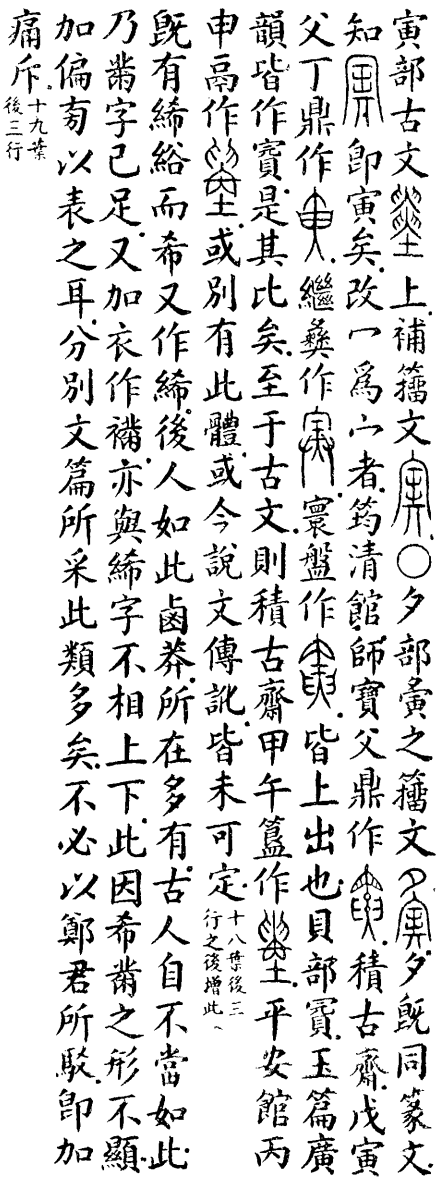 寅部古文上補籒文○夕部夤之籒文夕既同篆文
知即寅矣改冖爲宀者筠清館師寶父鼎作積古齋戊寅
父丁鼎作繼彝作寰盤作皆上出也貝部賓玉篇廣
韻皆作賓是其比矣至于古文則積古齋甲午簋作平安館丙
申鬲作或別有此體或今說文傳訛皆未可定十八葉後三
行之後增此
既有絺綌而希又作絺後人如此鹵莽所在多有古人自不當如此
乃黹字已足又加衣作襧亦與絺字不相上下此因希黹之形不顯
加偏旁以表之耳分別文篇所采此類多矣不必以鄭君所駁即加
痛斥十九葉
後三行